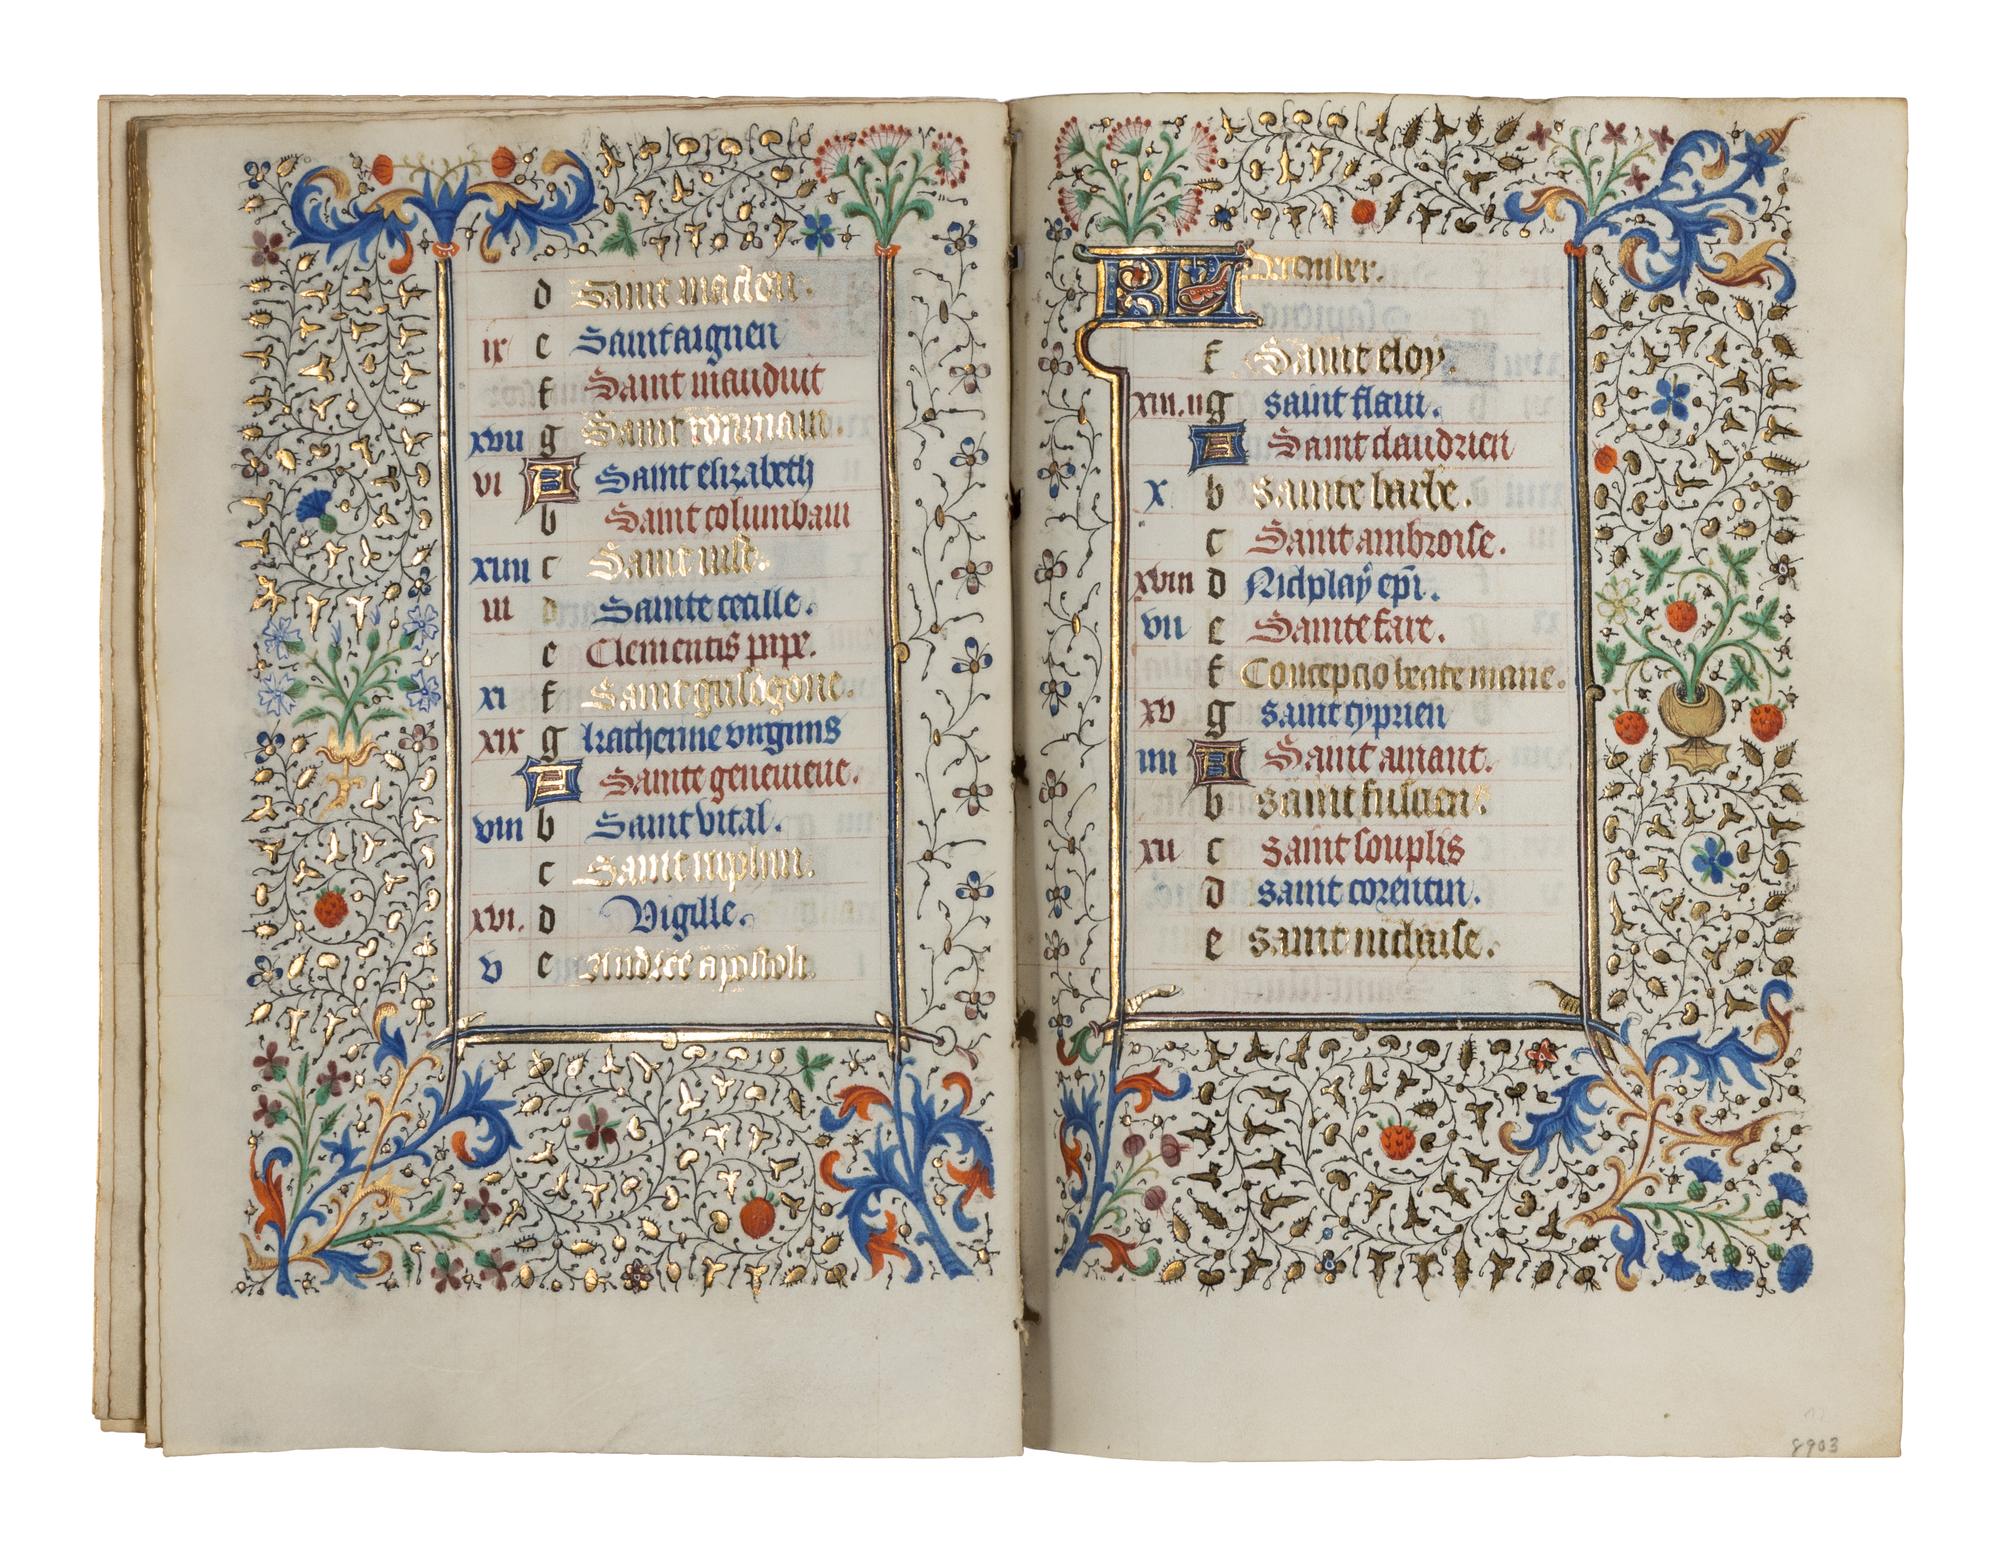 d Saint maclou.
ix e Saint aignen
f Saint mauduit
xvii g Saint rommain.
vi A Saint elizabeth
b Saint columbain
xiiii c Saint iust.
iii d Sainte cecille.
e Clementis pape.
xi f Saint grisogone.
xix g katherine virginis
A Sainte geneuieue.
viii b Saint vital.
c Saint ruphin.
xvi. d Vigille.
v e Andree apostoli.
KL December.
f Saint eloy.
xiii.ii g saint flaui.
A Saint claudrien
x b Sainte barbe.
c Saint ambroise.
xviii d Nicholay epi.
vii e Sainte fare.
f Concepcio beate marie.
xv g saint cyprien
iiii A Saint amant.
b saint fuscien.
xii c saint souplis
d saint corentin.
e saint nichaise.
8903